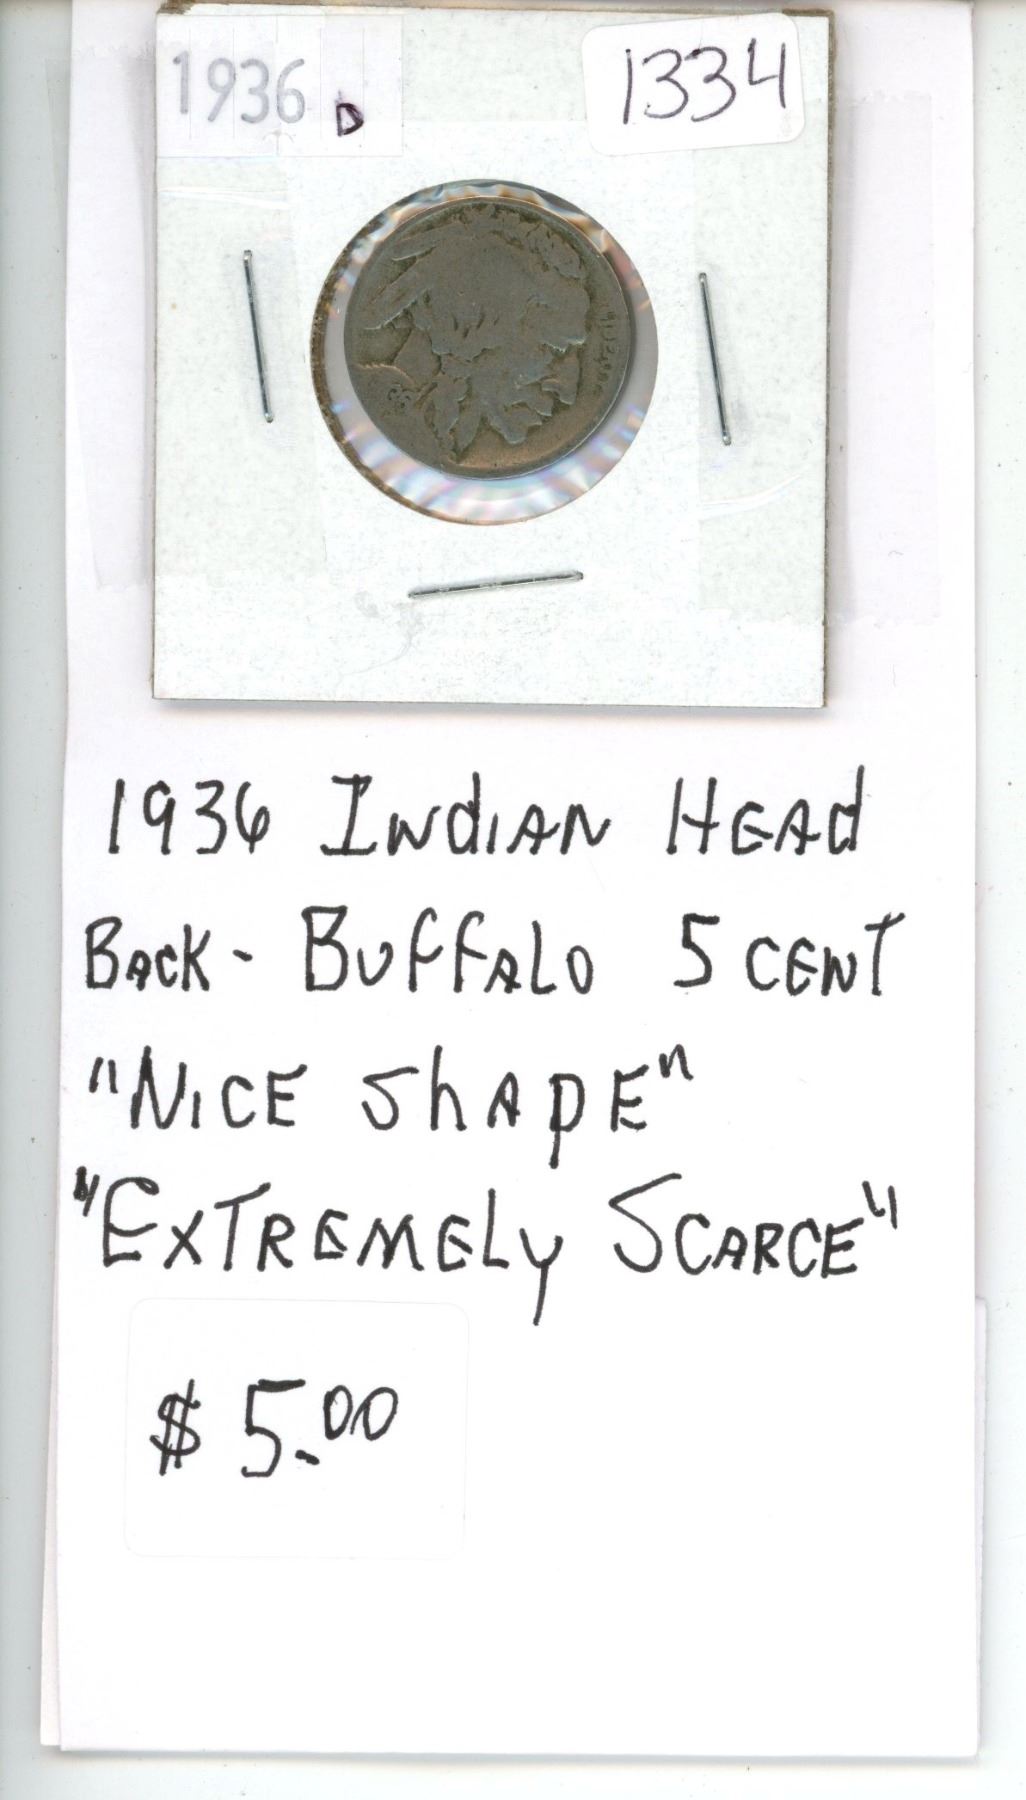 1936 D
1334
1936 Indian Head
Back - Buffalo 5 cent
"Nice Shape"
"Extremely Scarce"
$ 5.00